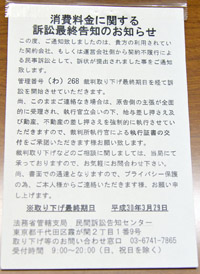 消費料金に関する
訴訟最終告知のお知らせ
この度、ご通知致しましたのは、貴方の利用されていた契約会社、もしくは運営会社側から契約不履行による民事訴訟として、訴状が提出されました事をご通知致します。
管理番号（わ）268 裁判取り下げ最終期日を経て訴訟を開始させていただきます。
尚、このままご連絡なき場合は、原告側の主張が全面的に受理され、執行官立会いの下、給与差し押さえ及び動産、不動産の差し押さえを強制的に執行させていただきますので、裁判所執行官による執行証書の交付をご承諾いただきます様お願い致します。
裁判取り下げなどのご相談に関しましては、当局にて承っておりますので、お気軽にお問合わせ下さい。
尚、書面での通達となりますので、プライバシー保護の為、ご本人様からご連絡いただきます様、お願い申し上げます。
※取り下げ最終期日 平成30年3月29日
法務省管轄支局 民間訴訟告知センター
東京都千代田区霞が関2丁目1番9号
取り下げ等のお問い合わせ窓口 03-6741-7865
受付時間 9:00～20:00（日、祝日を除く）